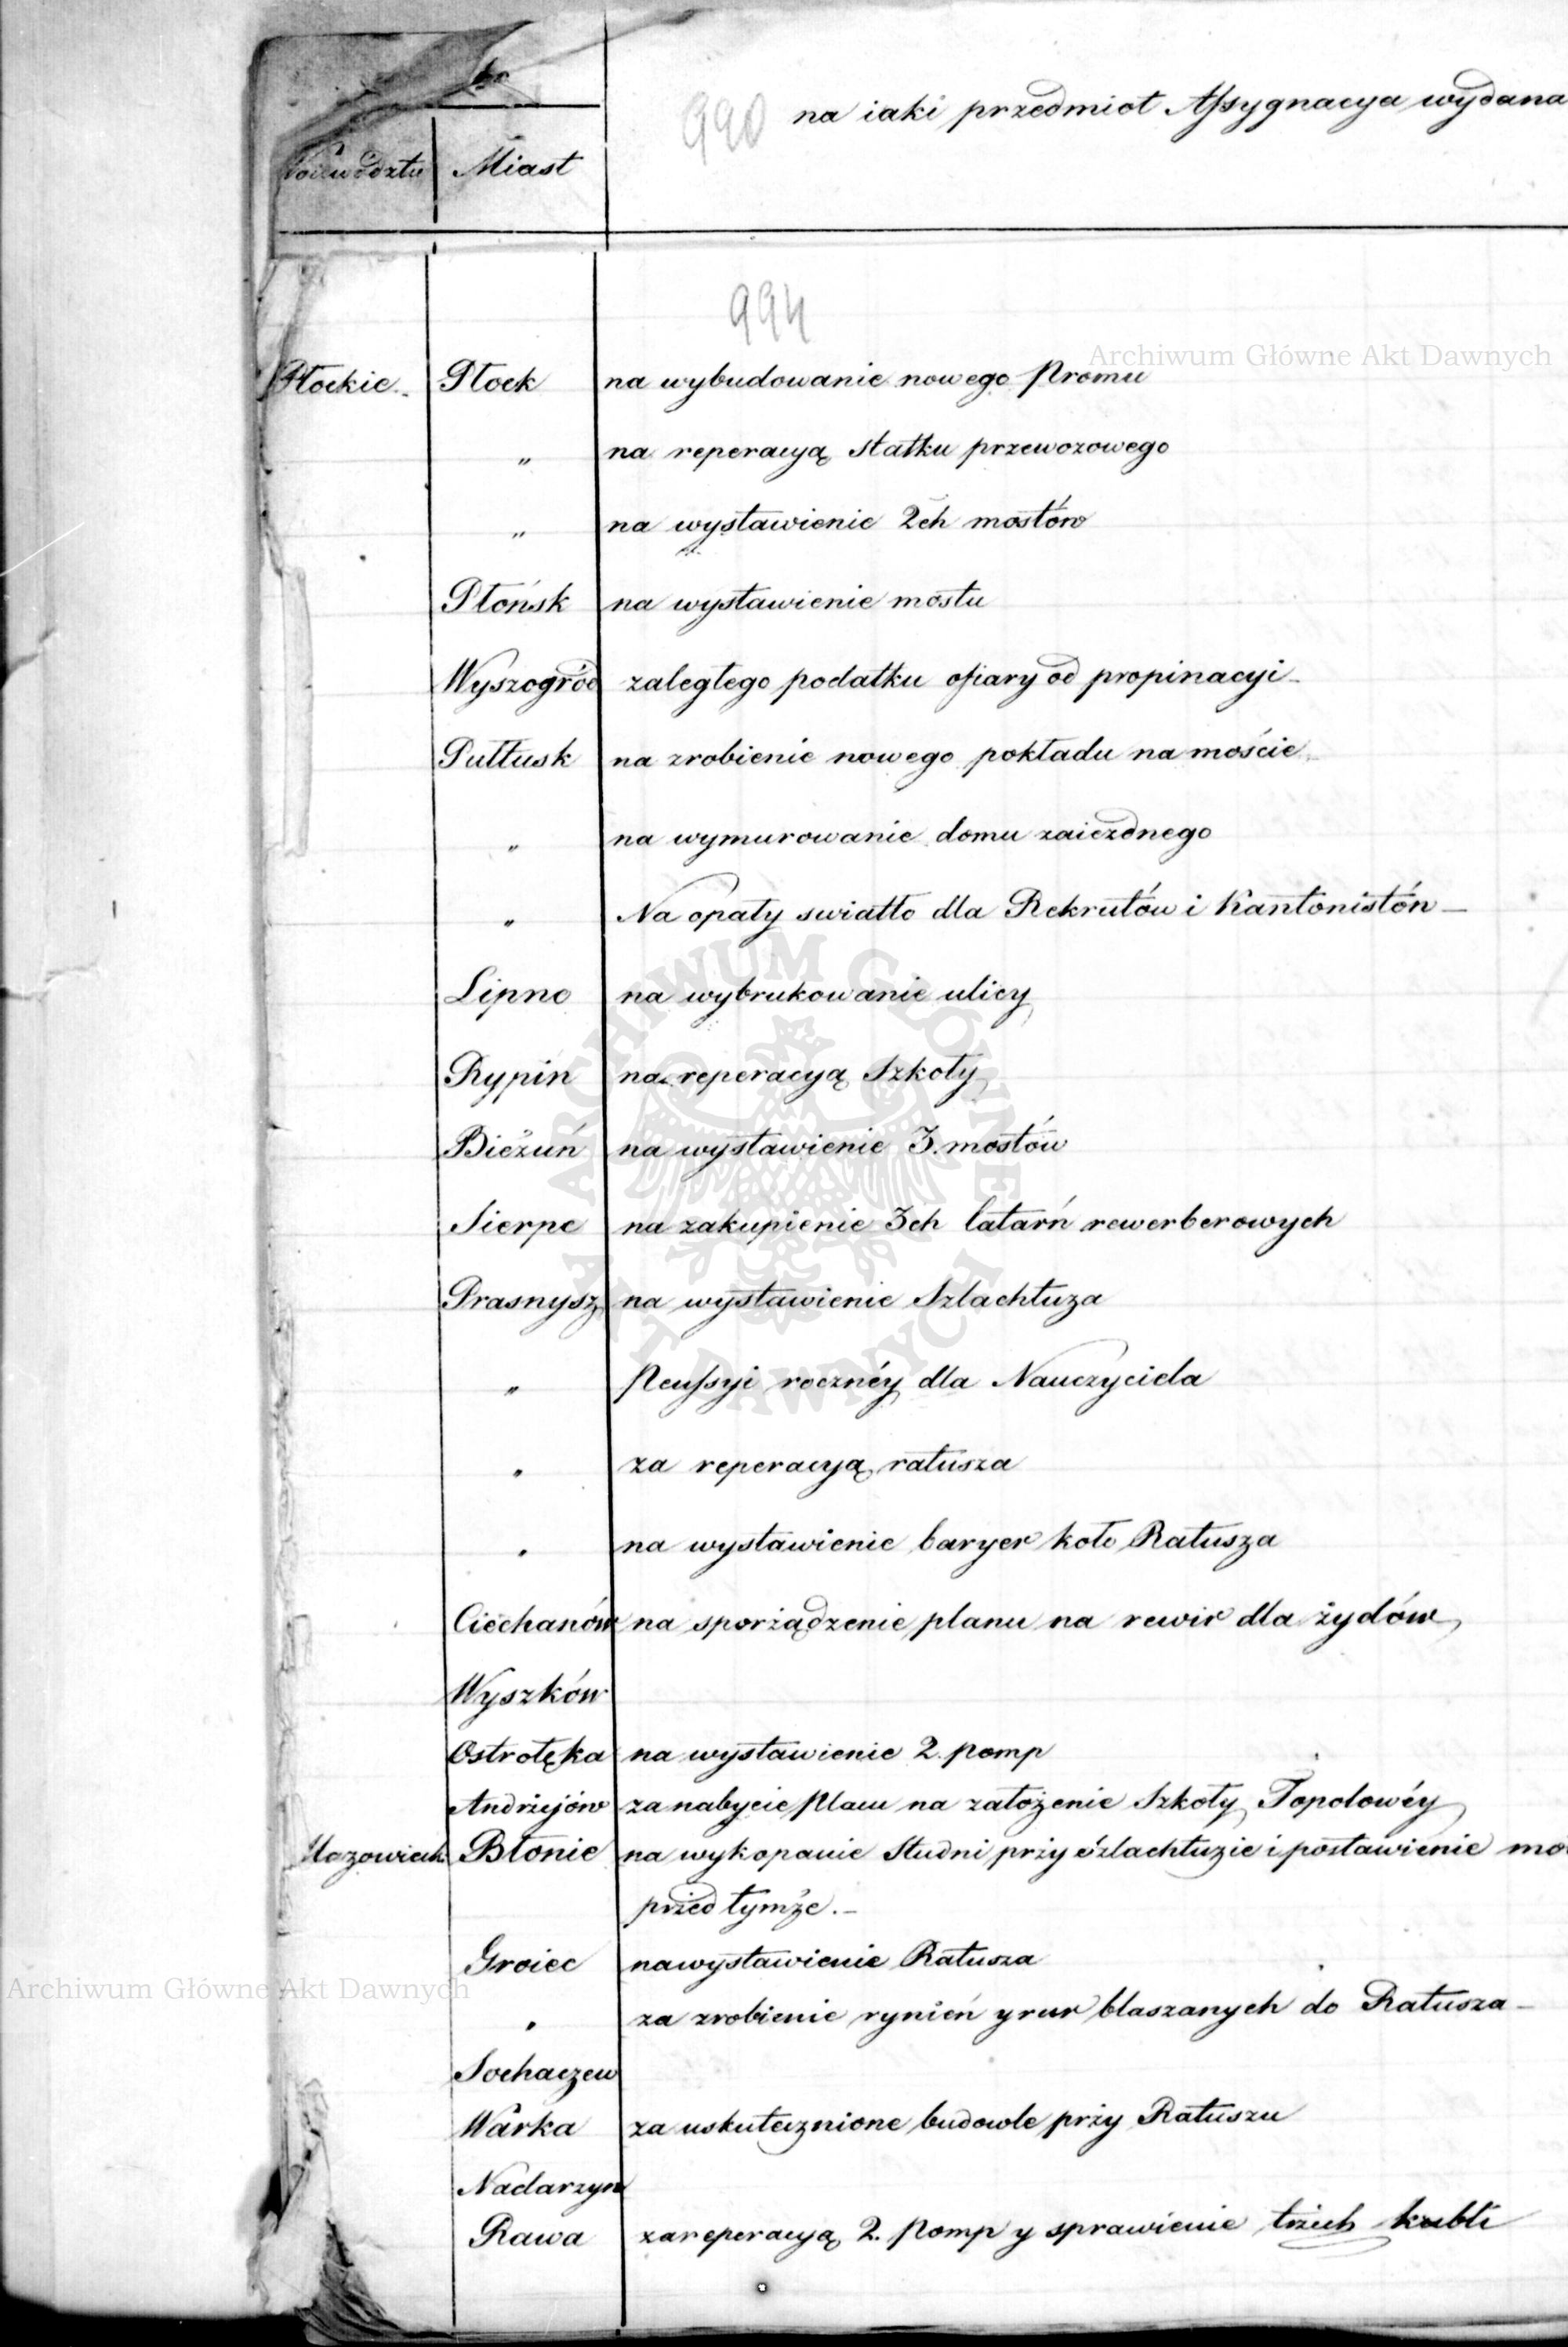 990 na iaki przedmiot Assygnacya wydana
Woiewództw Miast
994
Archiwum Główne Akt Dawnych
Płockie. Płock na wybudowanie nowego Promu
„ na reperacyą Statku przewozowego
„ na wystawienie 2ch mostów
Płońsk na wystawienie mostu
Wyszogród zaległego podatku ofiary od propinacyi
Pułtusk na zrobienie nowego pokładu na moście
„ na wymurowanie domu zaiezdnego
„ Na opały swiatło dla Rekrutów i Kantonistów
Lipno na wybrukowanie ulicy
Rypin na reperacyą Szkoły
Bieżuń na wystawienie 3. mostów
Sierpc na zakupienie 3ch latarń rewerberowych
Prasnysz na wystawienie Szlachtuza
„ Penssyi rocznéy dla Nauczyciela
„ za reperacyą ratusza
„ na wystawienie baryer koło Ratusza
Ciechanów na sporządzenie planu na rewir dla żydów
Wyszków
Ostrołęka na wystawienie 2. pomp
Andrzejów za nabycie Placu na założenie Szkoły Topolowéy
Mazowieck. Błonie na wykopanie Studni przy szlachtuzie i postawienie mo
przed tymże.
Groiec na wystawienie Ratusza
„ za zrobienie rynień y rur blaszanych do Ratusza
Archiwum Główne Akt Dawnych
Sochaczew
Warka za uskutecznione budowle przy Ratuszu
Nadarzyn
Rawa za reperacyą 2. Pomp y sprawienie trzech kubli
ARCHIWUM GŁÓWNE AKT DAWNYCH